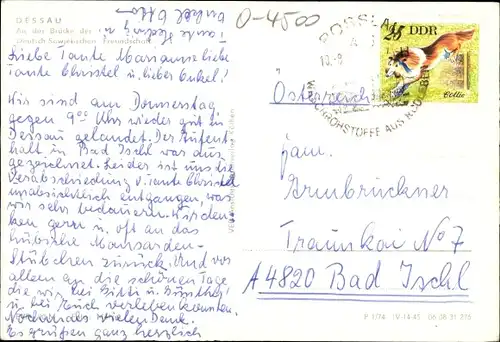 DESSAU
An der Brücke der
Deutsch-Sowjetischen Freundschaft
Tante Hertwig u.
Onkel Otto
O-4500
Liebe Tante Marianne liebe
Tante Christel u. lieber Onkel!
Wir sind am Donnerstag
gegen 9⁰⁰ Uhr wieder gut in
Dessau gelandet. Der Aufent
halt in Bad Ischl war aus
gezeichnet. Leider ist uns die
Verabschiedung v. Tante Christel
unabsichtlich entgangen, was
wir sehr bedauern. Wir den
ken gern u. oft an das
hübsche Mansarden-
Stübchen zurück. Und vor
allem an die schönen Tage
die wir bei Gitti u. Günther
u. bei Euch verleben konnten.
Nochmals vielen Dank.
Es grüßen ganz herzlich
ROSSLAU
DDR
25
Collie
Österreich
Fam.
Armbrückner
Traunkai No 7
A 4820 Bad Ischl
P 1/74 IV-14-45 06 08 31 276